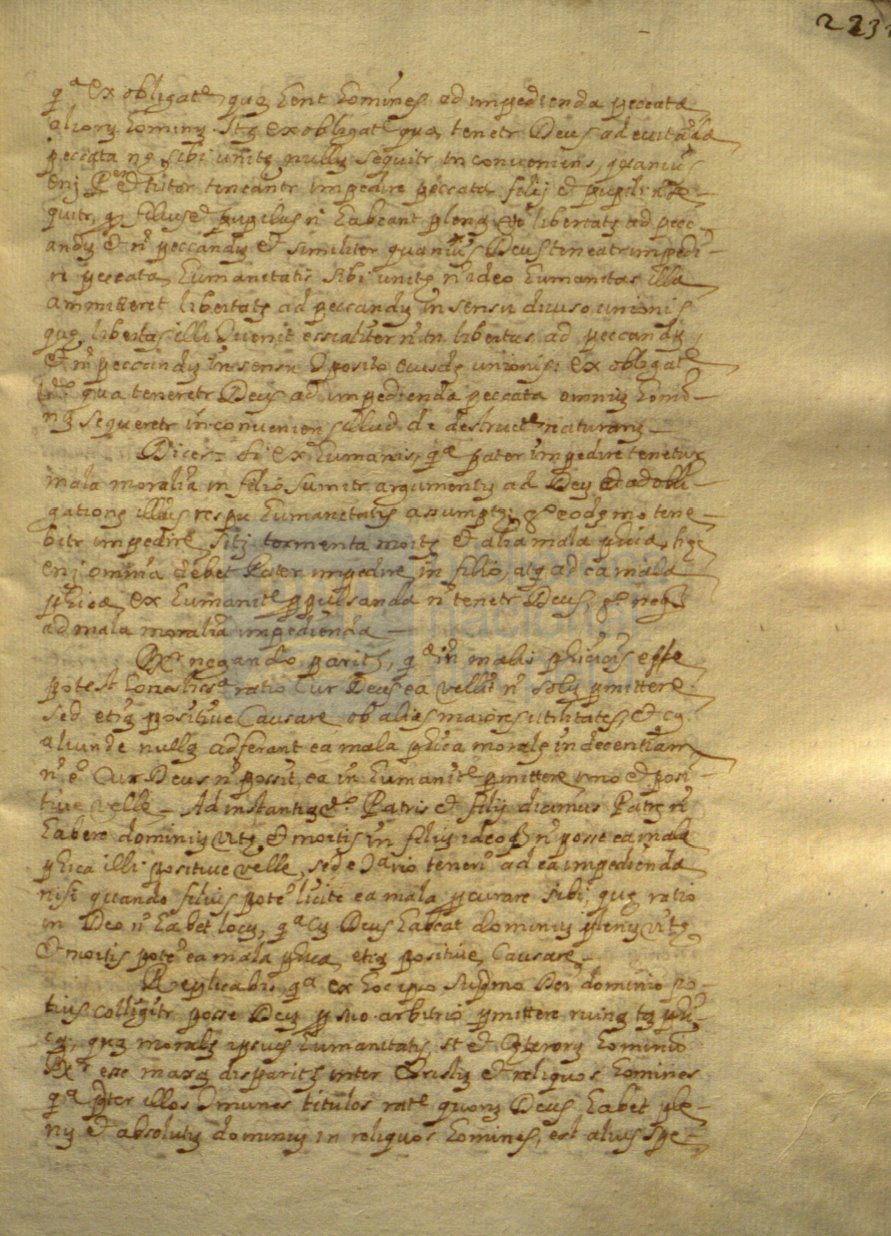 223
qª ex obligatᵉ quę hent homines ad impedienda peccata
aliorỹ hominỹ stq ex obligatᵉ qua tenetr Deus ad euitãda
peccata nę sibi unitę nullỹ sequitr inconueniens, quamuis
enj Pr et tutor teneantr impedire peccata filij et pupili nō se-
quitr, qđ filius et pupilus ñ habeant plenã libertatę ad pecc-
andỹ et ñ peccandỹ et similiter quamuis Deus teneatr impedi-
ri peccata humanitatis sibi unitę ñ ideo humanitas illa
ammitteret libertatę ad peccandỹ in sensu diuiso unionis
quę libertas illi essialiter ñ libertas ad peccandỹ
et ñ peccandỹ in sensu cposito eiusdę unionis: ex obligatᵉ
qua teneretr Deus ad impedienda peccata omniỹ homi-
nỹ sequeretr inconueniens illud de destructᵉ naturarỹ
Dices: si ex humanis, qª pater impedire tenetur
mala moralia in filio sumitr argumentỹ ad Deỹ et ad obli-
gationę illius respu humanitatis assumptę; eodę mo tene-
bitr impedire sitj tormenta mortę et alia mala phica, hęc
enj omnia debet Pater impedire in filio, atq ad ea mala
phica ex humanitᵉ ppulsanda ñ tenetr Deus, gº neq
ad mala moralia impedienda
Rʳ negando paritę, qª in malis phicis esse
potest honestisª ratio cur Deus ea vellit ñ solỹ pmittere
sed etiã positiue causare ob alias maiores utilitates, et cỹ
aliunde nullã adferant ea mala phica moralę indecentiam
ñ eº cur Deus ñ possit ea in humanitᵉ pmittere imo et posi-
tiue velle. Ad instantiã Patris et filij dicimus Patrę ñ
habere dominiỹ vitę et mortis in filiỹ ideoq ñ posse ea mala
phica illi positiue velle, sed e cªrio teneri ad ea impedienda
nisi quando filius potᵉ licite ea mala pcurare sibi, quę ratio
in Deo ñ habet locỹ, qª cỹ Deus habeat dominiỹ plenỹ vitę
et mortis potᵉ ea mala phica etiã positiue causare
Replicabis, qª ex hoc ipso supmo Dei dominio po-
tius colligitr posse Deỹ p suo arbitrio pmittere ruinã tã phi-
cã, quã moralę ipsius humanitatis, st et cęterorỹ hominū
Rʳ esse maxã disparitę inter Christỹ et reliquos homines
qª pter illos cmunes titulos ratᵉ quorỹ Deus habet ple-
nỹ et absolutỹ dominiỹ in reliquos homines, est alius spe-